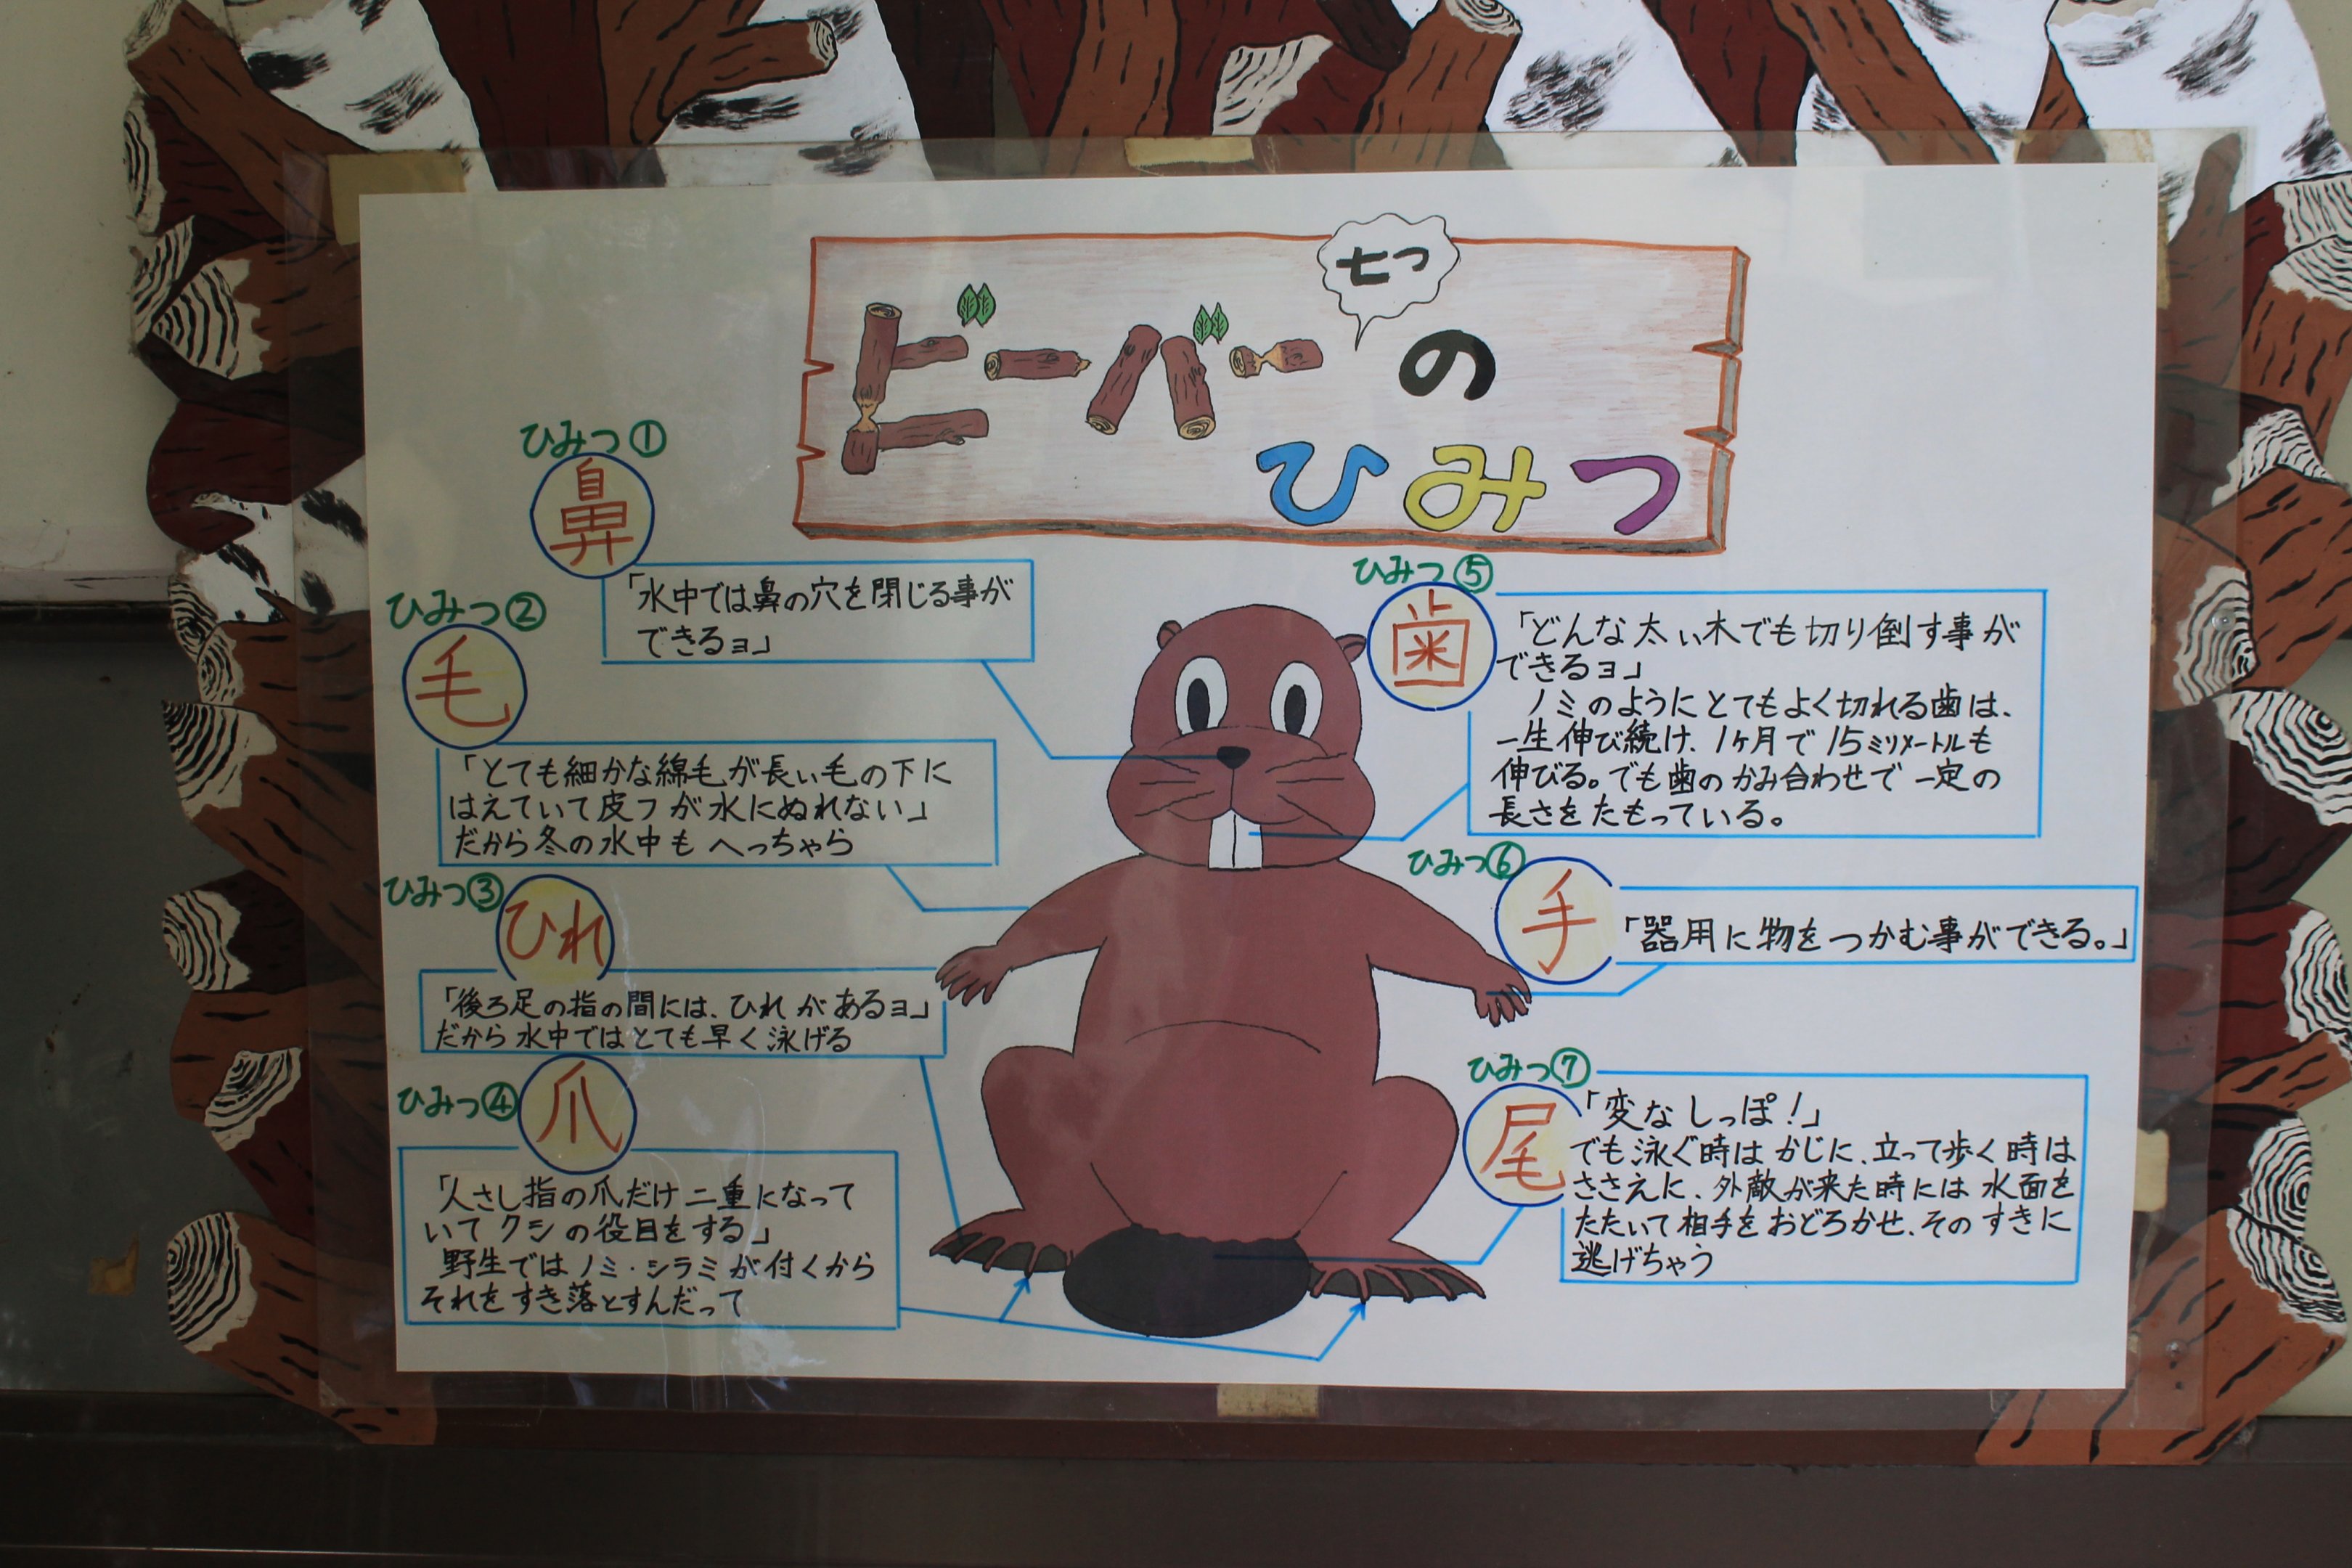 七つ
ビーバーの
ひみつ
ひみつ①
鼻
「水中では鼻の穴を閉じる事が
できるョ」
ひみつ②
毛
「とても細かな綿毛が長い毛の下に
はえていて皮フが水にぬれない」
だから冬の水中もへっちゃら
ひみつ③
ひれ
「後ろ足の指の間には、ひれがあるョ」
だから水中ではとても早く泳げる
ひみつ④
爪
「人さし指の爪だけ二重になって
いてクシの役目をする」
野生ではノミ・シラミが付くから
それをすき落とすんだって
ひみつ⑤
歯
「どんな太い木でも切り倒す事が
できるョ」
ノミのようにとてもよく切れる歯は、
一生伸び続け、1ヶ月で15ミリメートルも
伸びる。でも歯のかみ合わせで一定の
長さをたもっている。
ひみつ⑥
手
「器用に物をつかむ事ができる。」
ひみつ⑦
尾
「変なしっぽ!」
でも泳ぐ時はかじに、立って歩く時は
ささえに、外敵が来た時には水面を
たたいて相手をおどろかせ、そのすきに
逃げちゃう